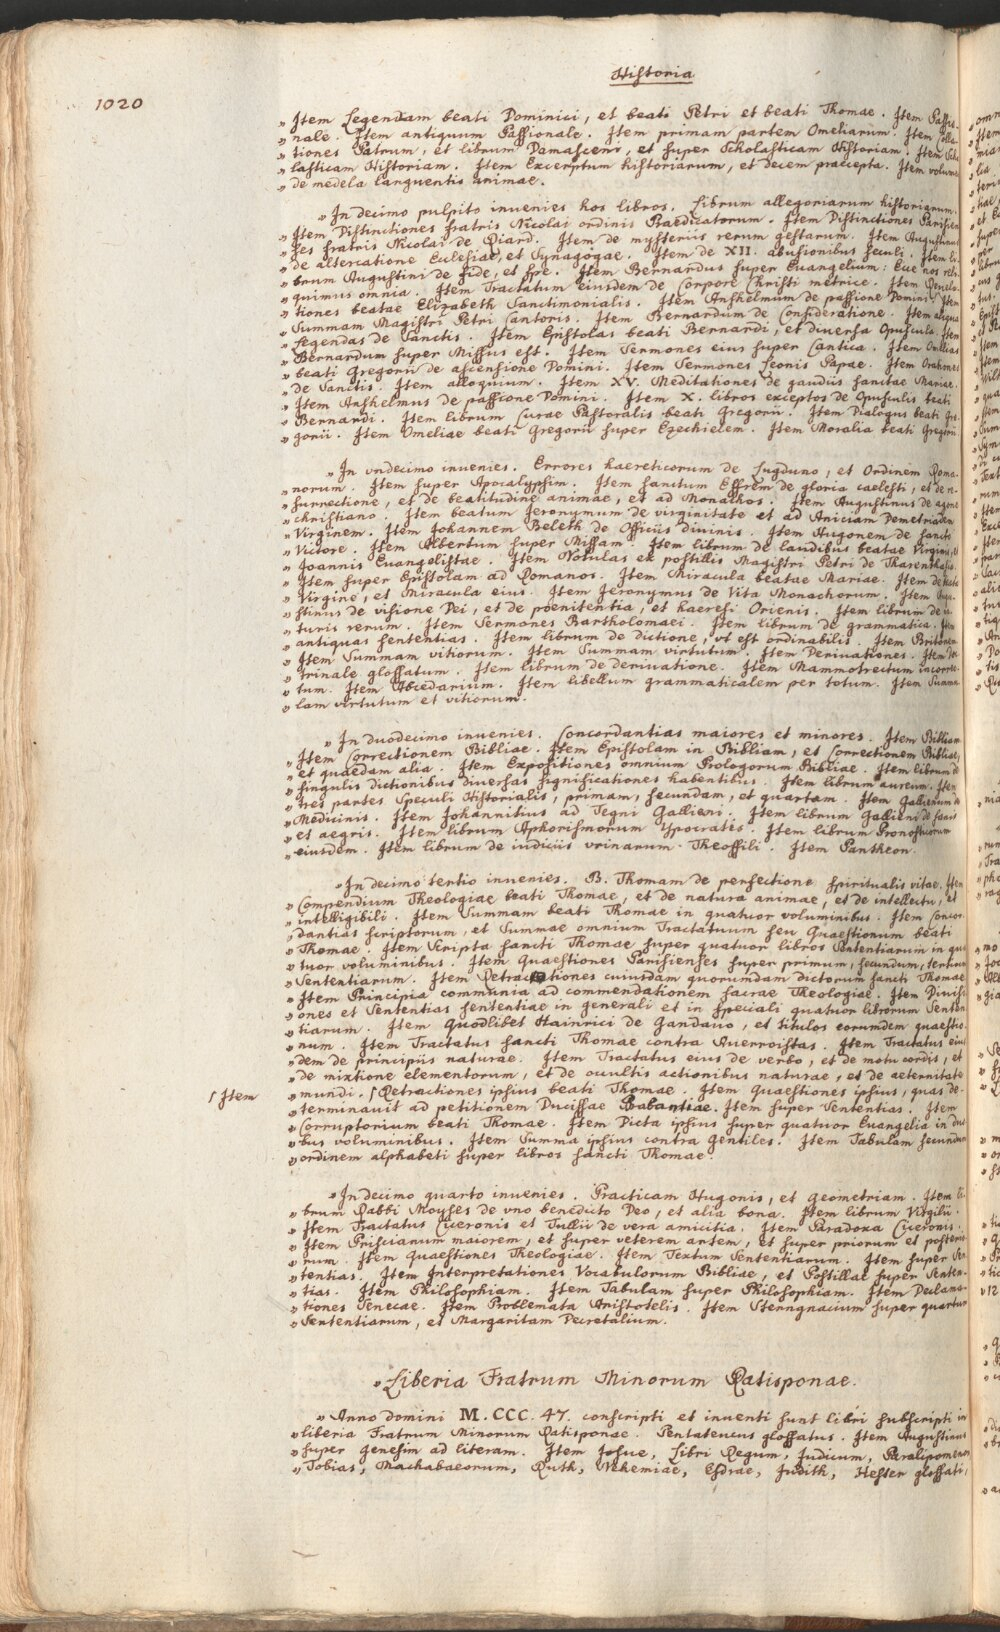 1020
Historia
„ Item Legendam beati Dominici, et beati Petri et beati Thomae. Item Passio-
„ nale. Item antiquum Passionale. Item primam partem Omeliarum. Item Colla-
„ tiones Patrum, et librum Damasceni, et super Scholasticam Historiam. Item Scho-
„ lasticam Historiam. Item Excerptum historiarum, et decem praecepta. Item volumen
„ de medela languentis animae.
„ In decimo pulpito invenies hos libros. Librum allegoriarum historiarum.
„ Item Distinctiones fratris Nicolai ordinis Praedicatorum. Item Distinctiones Parisien-
„ ses fratris Nicolai de Biard. Item de mysteriis rerum gestarum. Item Augustinus
„ de altercatione Ecclesiae, et Synagogae. Item de XII. abusionibus seculi. Item li-
„ brum Augustini de fide, et spe. Item Bernardus super Euangelium: Ecce nos reli-
„ quimus omnia. Item Tractatum eiusdem de Corpore Christi metrice. Item Revela-
„ tiones beatae Elizabeth Sanctimonialis. Item Anshelmum de passione Domini. Item
„ Summam Magistri Petri Cantoris. Item Bernardum de Consideratione. Item aliqua
„ Legendas de Sanctis. Item Epistolas beati Bernardi, et diuersa Opuscula. Item
„ Bernardum super Missus est. Item Sermones eius super Cantica. Item Omelias
„ beati Gregorii de ascensione Domini. Item Sermones Leonis Papae. Item Orationes
„ de Sanctis. Item alloquium. Item XV. Meditationes de gaudiis sanctae Mariae.
„ Item Anshelmus de passione Domini. Item X. libros exceptos de Opusculis beati
„ Bernardi. Item librum Curae Pastoralis beati Gregorii. Item Dialogus beati Gre-
„ gorii. Item Omeliae beati Gregorii super Ezechielem. Item Moralia beati Gregorii
„ In vndecimo inuenies. Errores haereticorum de Lugduno, et Ordinem Roma-
„ norum. Item super Apocalypsim. Item sanctum Effrem de gloria caelesti, et de re-
„ surrectione, et de beatitudine animae, et ad Monachos. Item Augustinus de agone
„ christiano. Item beatum Jeronymum de virginitate et ad Aniciam Demetriaden
„ Virginem. Item Johannem Beleth de Officiis diuinis. Item Hugonem de sancto
„ Victore. Item Albertum super Missam. Item librum de laudibus beatae Virginis, et
„ Joannis Euangelistae. Item Notulas ex postillis Magistri Petri de Tharenthasio.
„ Item super Epistolam ad Romanos. Item Miracula beatae Mariae. Item de beata
„ Virgine, et Miracula eius. Item Jeronymus de Vita Monachorum. Item Augu-
„ stinus de visione Dei, et de poenitentia, et haeresi Orienis. Item librum de na-
„ turis rerum. Item Sermones Bartholomaei. Item librum de grammatica. Item
„ antiquas sententias. Item librum de dictione, vt est ordinabilis. Item Britonem
„ Item Summam vitiorum. Item Summam virtutum. Item Deriuationes. Item Doc-
„ trinale glossatum. Item librum de deriuatione. Item Mammotrectum incorrec-
„ tum. Item Abcedarium. Item libellum grammaticalem per totum. Item Summu-
„ lam virtutum et vitiorum.
„ In duodecimo inuenies. Concordantias maiores et minores. Item Bibliam
„ Item Correctionem Bibliae. Item Epistolam in Bibliam, et Correctionem Bibliae,
„ et quaedam alia. Item Expositiones omnium Prologorum Bibliae. Item librum de
„ singulis dictionibus diuersas significationes habentibus. Item librum aureum. Item
„ tres partes Speculi Historialis, primam, secundam, et quartam. Item Gallienum de
„ Medicinis. Item Johannitius ad Tegni Gallieni. Item librum Gallieni de sanis
„ et aegris. Item librum Aphorismorum Ypocratis. Item librum Pronosticorum
„ eiusdem. Item librum de iudiciis vrinarum Theoffili. Item Pantheon.
„ In decimo tertio inuenies. B. Thomam de perfectione spiritualis vitae. Item
„ Compendium Theologiae beati Thomae, et de natura animae, et de intellectu, et
„ intelligibili. Item Summam beati Thomae in quatuor voluminibus. Item Concor-
„ dantias scriptorum, et Summae omnium Tractatuum seu Quaestionum beati
„ Thomae. Item Scripta sancti Thomae super quatuor libros Sententiarum in qua-
„ tuor voluminibus. Item Quaestiones Parisienses super primum, secundum, tertium
„ Sententiarum. Item Retractationes cuiusdam quorumdam dictorum sancti Thomae
„ Item Principia communia ad commendationem sacrae Theologiae. Item Diuisi-
„ ones et Sententias sententiae in generali et in speciali quatuor librorum Senten-
„ tiarum. Item Quodlibet Hainrici de Gandauo, et titulos eorumdem quaestio-
„ num. Item Tractatus sancti Thomae contra Auerroistas. Item Tractatus eius-
„ dem de principiis naturae. Item Tractatus eius de verbo, et de motu cordis, et
„ de mixtione elementorum, et de occultis actionibus naturae, et de aeternitate
⌈ Item „ mundi. ⌈ Retractiones ipsius beati Thomae. Item Quaestiones ipsius, quas de-
„ terminauit ad petitionem Ducissae Babantiae. Item super Sententias. Item
„ Corruptorium beati Thomae. Item Dicta ipsius super quatuor Euangelia in duo-
„ bus voluminibus. Item Summa ipsius contra Gentiles. Item Tabulam secundum
„ ordinem alphabeti super libros sancti Thomae.
„ In decimo quarto inuenies. Practicam Hugonis, et Geometriam. Item li-
„ brum Rabbi Moyses de vno benedicto Deo, et alia bona. Item librum Virgilii.
„ Item Tractatus Ciceronis et Tullii de vera amicitia. Item Paradoxa Ciceronis.
„ Item Priscianum maiorem, et super veterem artem, et super priorum et posterio-
„ rum. Item Quaestiones Theologiae. Item Textum Sententiarum. Item super Sen-
„ tentias. Item Interpretationes Vocabulorum Bibliae, et Postillae super Senten-
„ tias. Item Philosophiam. Item Tabulam super Philosophiam. Item Declama-
„ tiones Senecae. Item Problemata Aristotelis. Item Sterngnacium super quartum
„ Sententiarum, et Margaritam Decretalium.
„ Liberia Fratrum Minorum Ratisponae.
„ Anno domini M.CCC.47. conscripti et inuenti sunt libri subscripti in
„ liberia Fratrum Minorum Ratisponae. Pentateucus glossatus. Item Augustinus
„ super Genesim ad literam. Item Josue, Libri Regum, Judicum, Paralipomenon,
„ Tobias, Machabaeorum, Ruth, Nehemiae, Esdrae, Judith, Hester glossati,